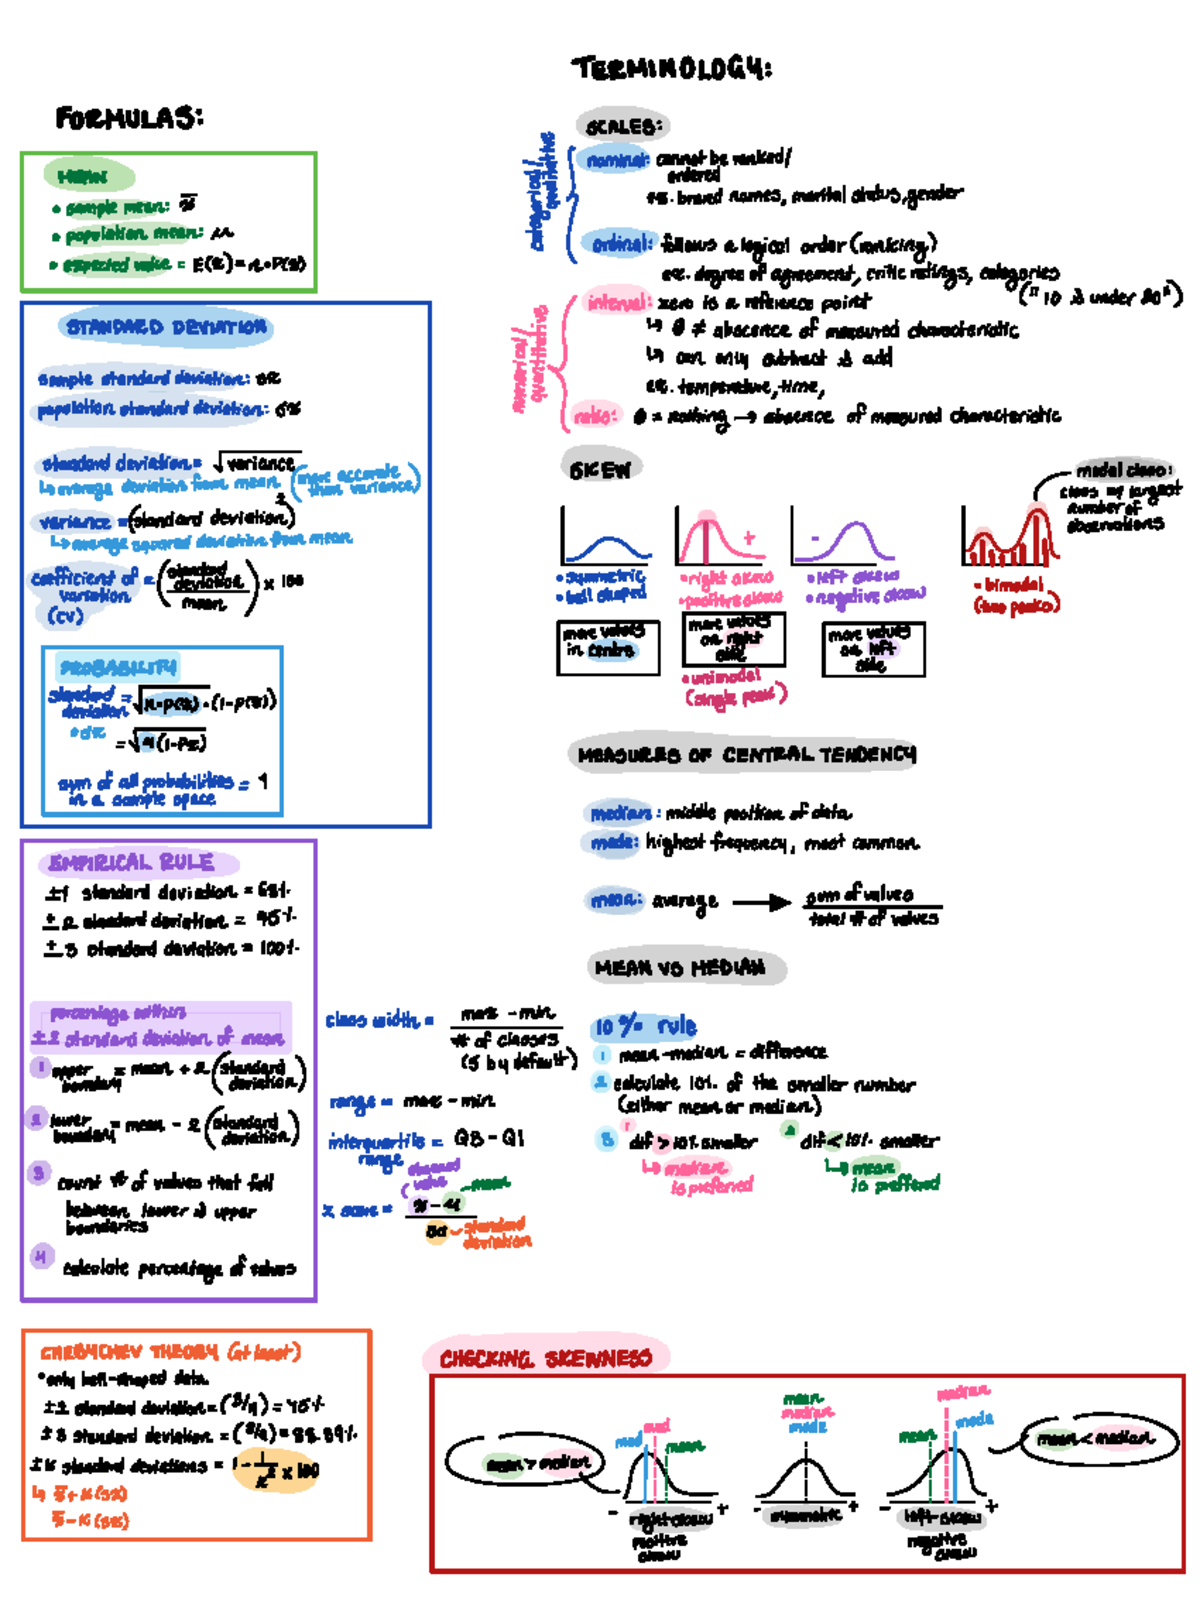 FORMULAS:
MEAN
• sample mean: x̅
• population mean: μ
• expected value = E(x) = n • P(x)
STANDARD DEVIATION
sample standard deviation: sx
population standard deviation: σx
standard deviation = √variance
↳ average deviation from mean (more accurate than variance)
variance = (standard deviation)²
↳ average squared deviation from mean
coefficient of variation (CV) = (standard deviation / mean) × 100
PROBABILITY
standard deviation = √n•p(x) • (1-p(x))
• σx
= √μ(1-Px)
sum of all probabilities = 1
in a sample space
EMPIRICAL RULE
±1 standard deviation = 68%
±2 standard deviation = 95%
±3 standard deviation = 100%
percentage within
±2 standard deviation of mean
1 upper boundary = mean + 2 (standard deviation)
2 lower boundary = mean - 2 (standard deviation)
3 count # of values that fall
between lower & upper
boundaries
4 calculate percentage of values
class width = max - min / # of classes
(5 by default)
range = max - min
interquartile range = Q3 - Q1
observed value
mean
z score = x - μ / sd
standard deviation
CHEBYCHEV THEORY (at least)
• only bell-shaped data
±2 standard deviation = (3/4) = 75%
±3 standard deviation = (8/9) = 88.89%
±K standard deviations = 1 - 1/K² × 100
↳ x̅ + K(sx)
x̅ - K(sx)
TERMINOLOGY:
SCALES:
categorical/
qualitative
nominal: cannot be ranked/
ordered
ex. brand names, marital status, gender
ordinal: follows a logical order (ranking)
ex. degree of agreement, critic ratings, categories
("10 & under 20")
numerical/
quantitative
interval: zero is a reference point
↳ 0 ≠ abscence of measured characteristic
↳ can only subtract & add
ex. temperature, time,
ratio: 0 = nothing → abscence of measured characteristic
SKEW
• symmetric
• bell shaped
more values
in centre
+
• right skew
• positive skew
more values
on right
side
• unimodal
(single peak)
-
• left skew
• negative skew
more values
on left
side
modal class:
class w/ largest
number of
observations
• bimodal
(two peaks)
MEASURES OF CENTRAL TENDENCY
median: middle position of data
mode: highest frequency, most common
mean: average → sum of values / total # of values
MEAN VS MEDIAN
10% rule
1 mean - median = difference
2 calculate 10% of the smaller number
(either mean or median)
3 1 dif > 10% smaller
↳ median
is preferred
2 dif < 10% smaller
↳ mean
is preffered
CHECKING SKEWNESS
mean > median
mod
med
mean
- +
right-skew
positive
skew
mean
median
mode
- +
symmetric
mean
median
mode
- +
left-skew
negative
skew
mean < median